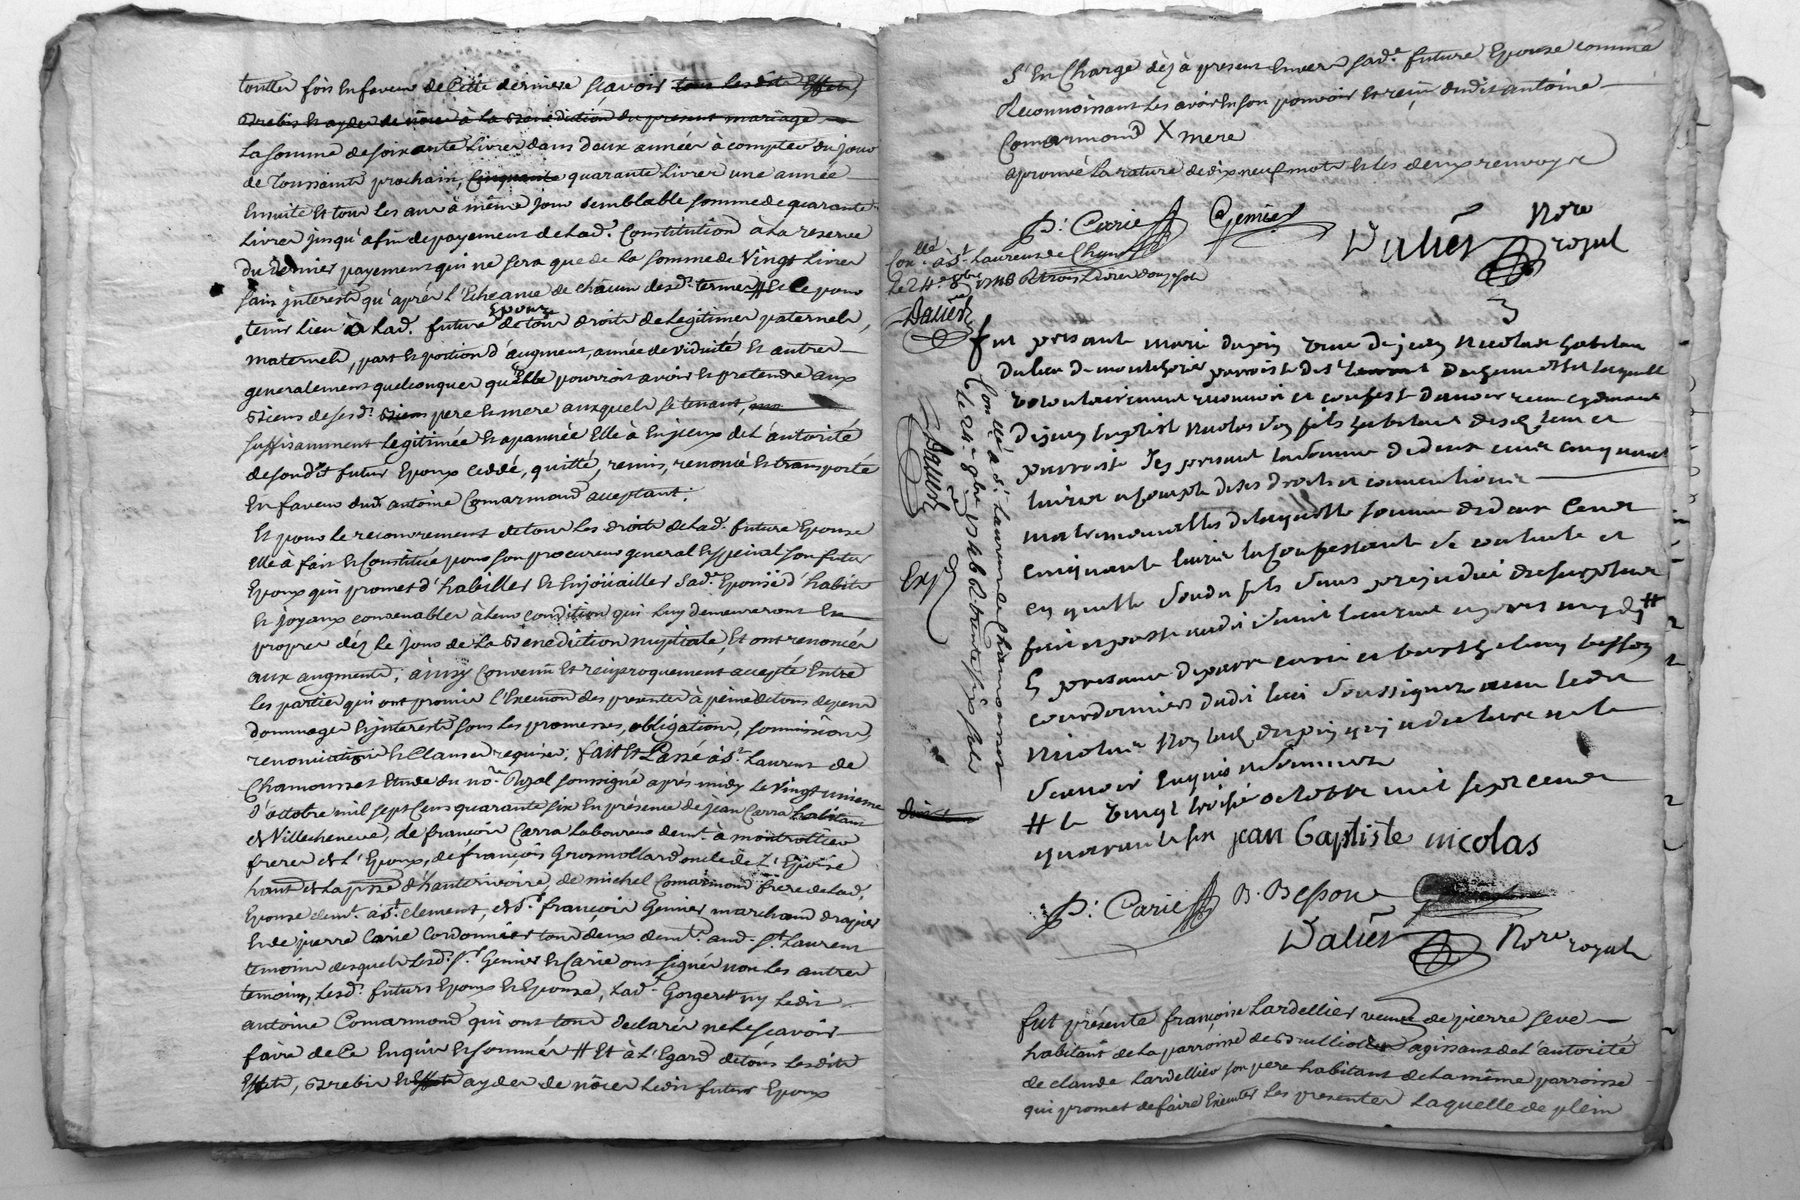 touttes fois en faveur de cette derniere scavoir tous lesdits effets,
brebis et aydes de nôces à la benediction du present mariage
la somme de soixante livres dans deux années à compter du jour
de toussaints prochain, cinquante quarante livres une année
ensuite et tous les ans à même jour semblable somme de quarante
livres jusqu'a fin de payement de lad. constitution à la reserve
du dernier payement qui ne sera que de la somme de vingt livres
sans interests qu'après l'echeance de chacun desd. termes # et ce pour
tenir lieu à lad. future epouze de tous droits de legitimes paternels,
maternels, part et portion d'augment, année de viduité et autres
generalement quelconques qu'elle pourroit avoir et pretendre aux
biens de sesd. biens pere et mere auxquels se tenant,
suffisamment legitimée et apannée elle à en jceux de l'autorité
de sond. futur epoux ceddé, quitté, remis, renoncé et transporté
en faveur dud. antoine Comarmond acceptant;
Et pour le recouvrement de tous les droits de lad. future epouse
elle à fait et constitué pour son procureur general et special son futur
epoux qui promet d'habiller et enjoüailler sad. epouse d'habits
et joyaux convenables à leur condition qui luy demeureront en
propre dés le jour de la benediction nuptiale, et ont renoncés
aux augments; ainsy convenu et reciproquement accepté entre
les parties qui ont promis l'execution des presentes à peine de tous depens
dommages et interests sous les promesses, obligations, soumissions,
renonciations et clauses requises; fait et passé à st. Laurent de
Chamousset etude du nore. royal soussigné après midy le vingt unieme
d'octobre mil sept cens quarante six en présence de jean Carra habitant
de Villecheneve, de françois Carra laboureur demt. à montrottier
freres de l'epoux, de françois Grosmollard oncle de l'epouse
habt. de la psse d'hauterivoire, de michel Comarmond frere de lad.
epouse demt. à st. clement, de sr. françois Genier marchand drapier
et de pierre Carie Cordonnier tous deux demt. aud. st. Laurent
temoins desquels lesd. sr. Genier et Carie ont signés non les autres
temoins, lesd. futurs epoux et epouse, lad. Gorgeret ny ledit
antoine Comarmond qui ont tous declarés ne le scavoir
faire de ce enquis et sommés # Et à l'egard de tous lesdits
effets, brebis et effets aydes de nôces ledit futur epoux
s'en charge déz à present envers sad. future epouse comme
reconnoissant les avoir en son pouvoir et reçu dudit antoine
Comarmond X mere
aprouvé la rature de dix neuf mots et les deux renvoys
P. Carie Genier
Dalier Nore royal
Conlléd à st. Laurent de Cham
le 24e. 8bre 1746 R trois livres douze sols
Dalier
3
fut presante marie dupin veuve de jean nicolas habitan
voluntairement reconnoit et confesse d'avoir receu
de jean baptiste nicolas son fils habitant
parroisse icy presant la somme de deux cens cinquante
livres a compte de ses droits et conventions
matrimonialles de laquelle somme de deux cens
cinquante livres la confessante se contente et
en quitte soudit fils sans prejudice du surplus
fait et passé audit saint laurent apres midy #
En presance de pierre carie et barthelemy besson
cordonniers dudit lieu soussignez avec ledit
nicolas non lad. dupin qui a declare ne le
scavoir enquis et sommee
# le vingt trois octobre mil sept cens
quarante six jean baptiste nicolas
P. Carie B. Besson
Dalier Nore royal
Conllé à st. Laurent de Chamousset
le 24e. 8bre 1746 R trente six sols
Dalier
Exp
fut présente françoise Lardellier veuve de pierre seve
habitant de la parroisse de Brullioles agissant de l'autorité
de claude Lardellier son pere habitant de la même parroisse
qui promet de faire executer les presentes laquelle de plein